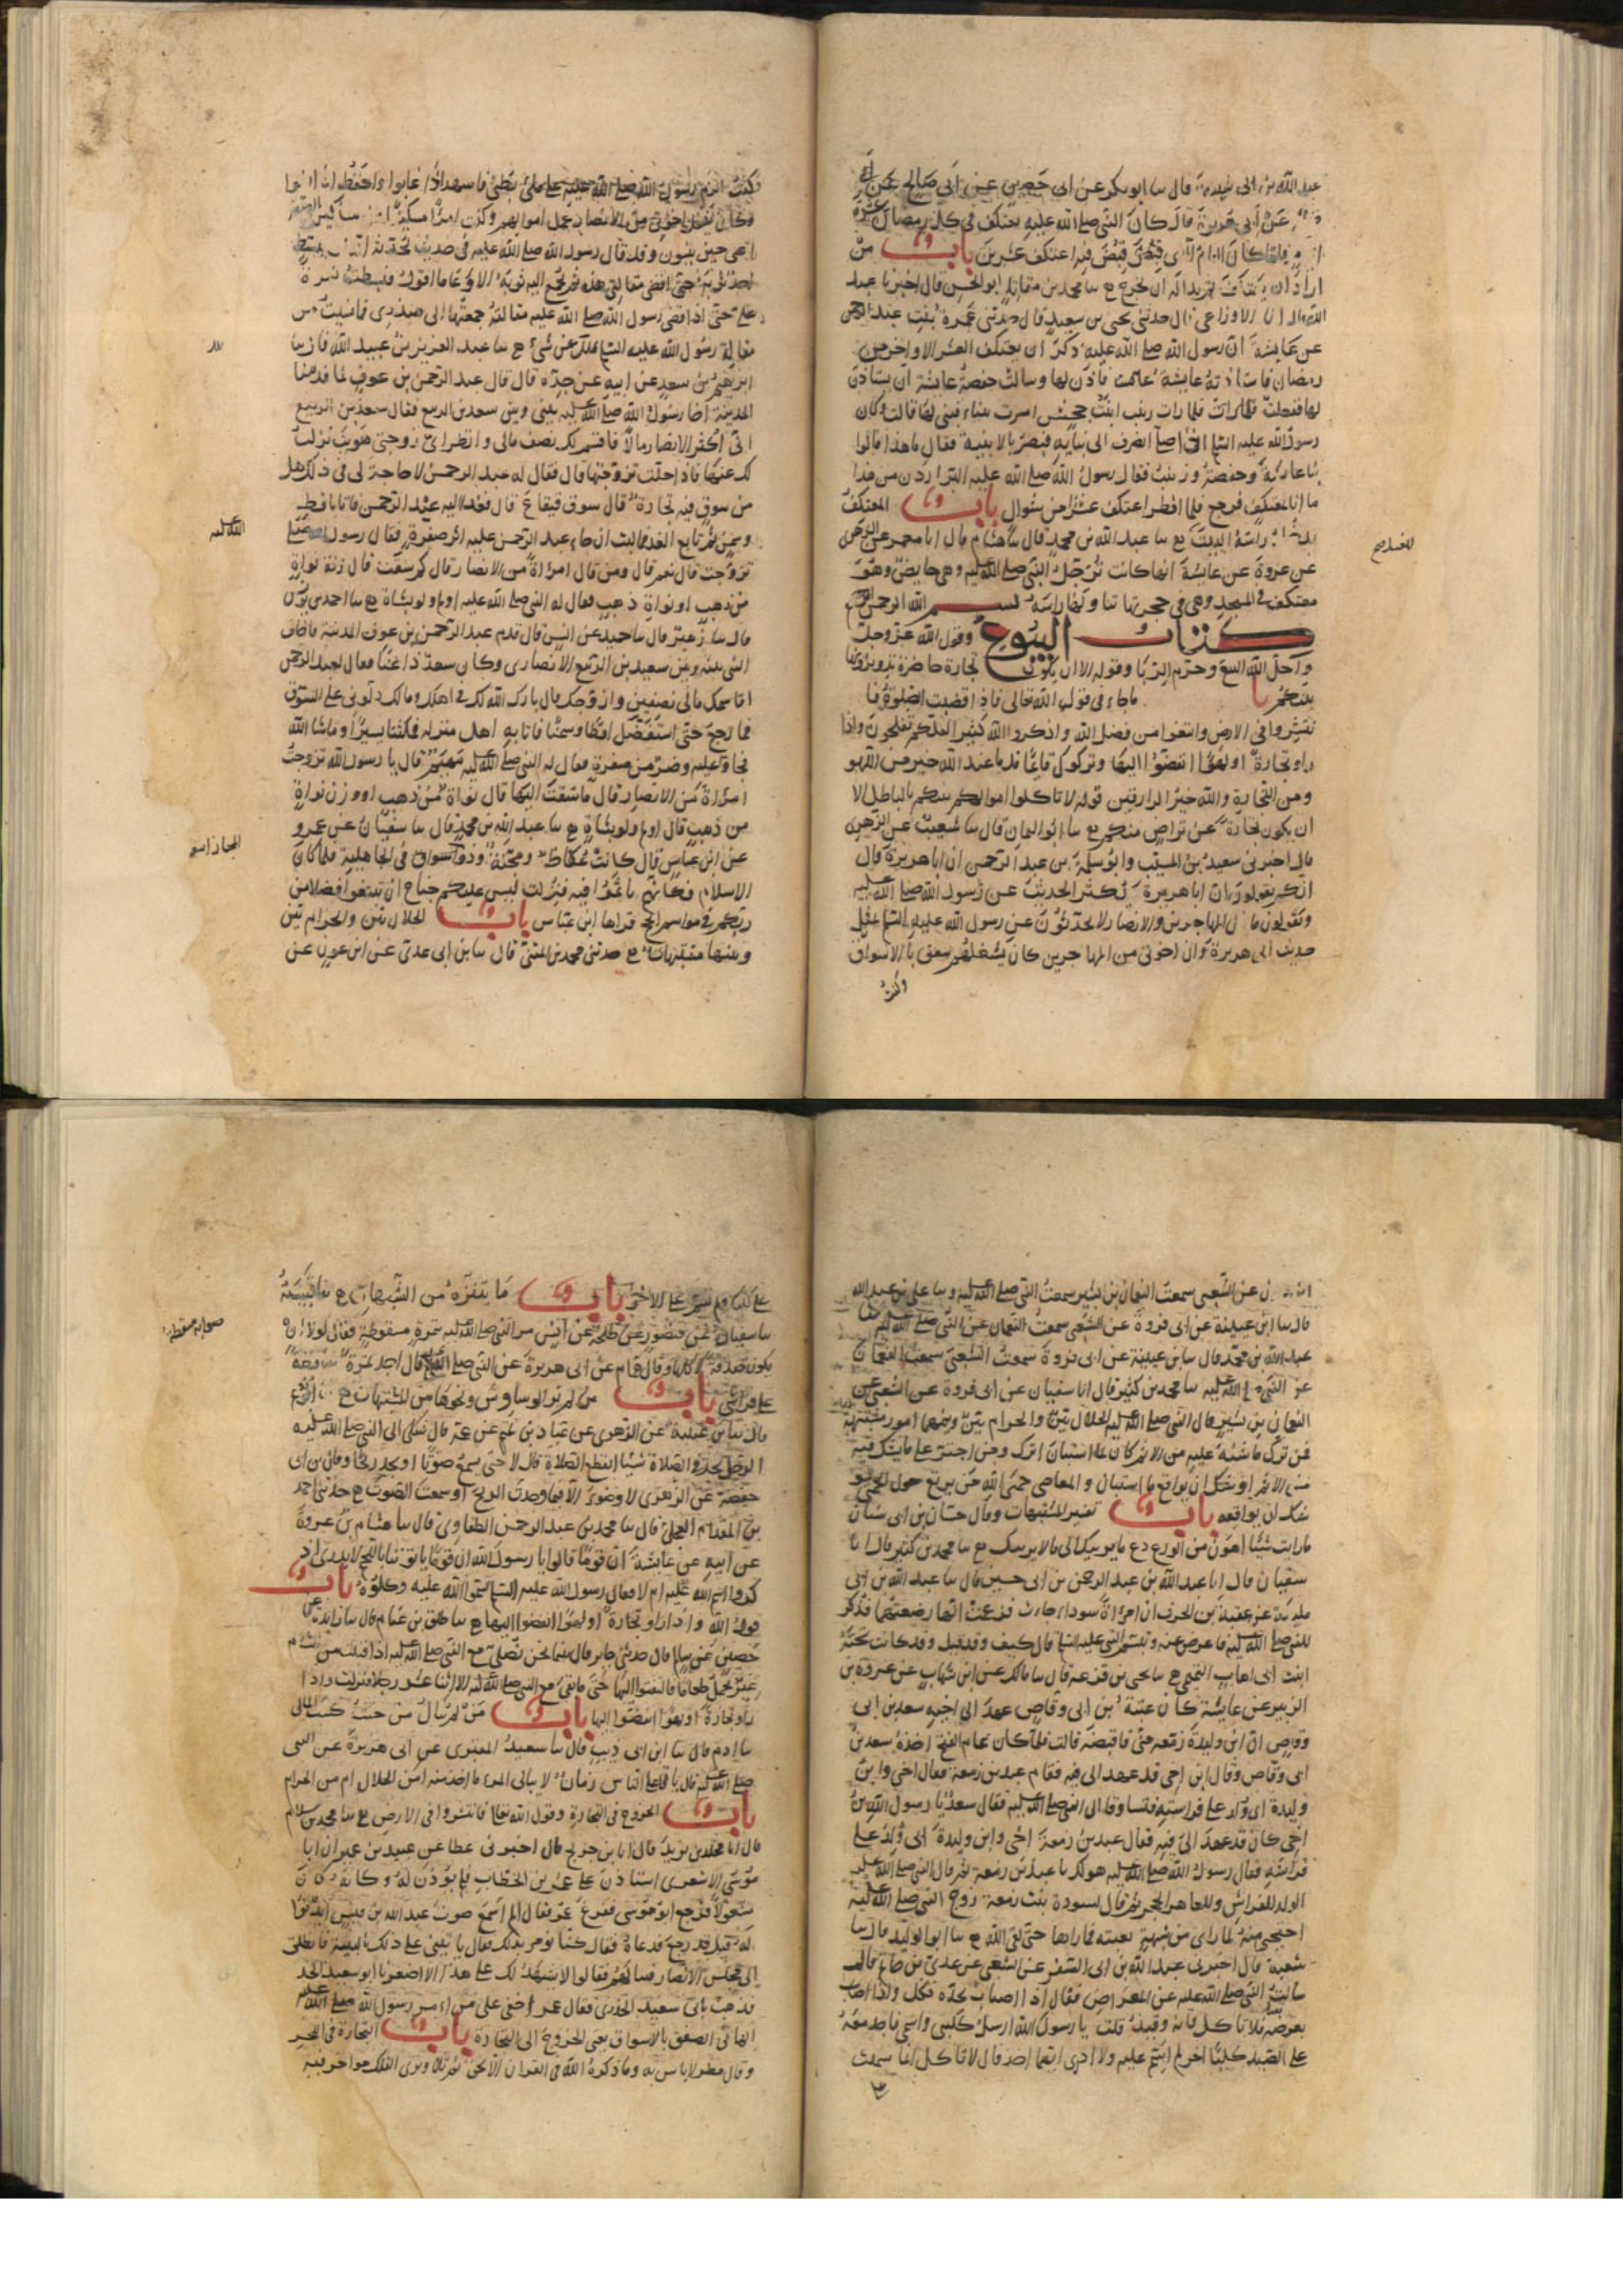 قال سا ابو بكر عن ابى حصين عن ابى صالح عن
عن ابى هريرة قال كان النبى صلى الله عليه يعتكف فى كل رمضان عشرة
فلما كان العام الذى قبض فيه اعتكف عشرين باب من
اراد ان يعتكف ثم بدا له ان يخرج ح سا محمد بن مقاتل ابو الحسن قال اخبرنا عبد
الله انا الاوزاعى قال حدثنى يحيى بن سعيد قال حدثتنى عمرة بنت عبد الرحمن
عن عايشة ان رسول الله صلى الله عليه ذكر ان يعتكف العشر الاواخر من
رمضان فاستاذنته عايشة فاذن لها وسالت حفصة عايشة ان تستاذن
لها ففعلت فلما رات زينب ابنت جحش امرت ببناء فبنى لها قالت وكان
رسول الله عليه السلم اذا صلى انصرف الى بنايه فبصر بالابنية فقال ما هذا قالوا
بنا عايشة وحفصة وزينب فقال رسول الله صلى الله عليه البر اردن من هذا
ما انا بمعتكف فرجع فلما افطر اعتكف عشرا من شوال باب المعتكف
يدخل راسه البيت ح سا عبد الله بن محمد قال سا هشام قال انا معمر عن الزهرى
عن عروة عن عايشة انها كانت ترجل النبى صلى الله عليه وهى حايض وهو
معتكف فى المسجد وهى فى حجرتها يناولها راسه بسم الله الرحمن الرحيم
كتاب البيوع وقول الله عز وجل
واحل الله البيع وحرم الربا وقوله الا ان يكون تجارة حاضرة تديرونها
بينكم باب ماجاء فى قول الله تعالى فاذا قضيت الصلوة فا
نتشروا فى الارض وابتغوا من فضل الله واذكروا الله كثيرا لعلكم تفلحون واذا
راوا تجارة او لهوا انفضوا اليها وتركوك قايما قل ما عند الله خير من اللهو
ومن التجارة والله خير الرازقين قوله لا تاكلوا اموالكم بينكم بالباطل الا
ان يكون تجارة عن تراض منكم ح سا ابو اليمان قال سا شعيب عن الزهرى
قال اخبرنى سعيد بن المسيب وابو سلمة بن عبد الرحمن ان ابا هريرة قال
انكم تقولون ان ابا هريرة يكثر الحديث عن رسول الله صلى الله عليه
وتقولون ما بال المهاجرين والانصار لا يحدثون عن رسول الله عليه السلم بمثل
حديث ابى هريرة وان اخوتى من المهاجرين كان يشغلهم صفق بالاسواق
وكنت
وكنت الزم رسول الله صلى الله عليه على ملئ بطنى فاشهد اذا غابوا واحفظ اذا نسوا
وكان يشغل اخوتى من الانصار عمل اموالهم وكنت امرا مسكينا من مساكين الصفة
اعى حين ينسون وقد قال رسول الله صلى الله عليه فى حديث يحدثه انه لن يبسط
احد ثوبه حتى اقضى مقالتى هذه ثم يجمع اليه ثوبه الا وعى ما اقول فبسطت نمرة
على حتى اذا قضى رسول الله صلى الله عليه مقالته جمعتها الى صدرى فما نسيت من
مقالة رسول الله عليه السلم تلك من شىء ح سا عبد العزيز بن عبيد الله قال سا
ابرهيم بن سعد عن ابيه عن جده قال قال عبد الرحمن بن عوف لما قدمنا
المدينة اخا رسول الله صلى الله عليه بينى وبين سعد بن الربيع فقال سعد بن الربيع
انى اكثر الانصار مالا فاقسم لك نصف مالى وانظر اى زوجتى هويت نزلت
لك عنها فاذا حلت تزوجتها قال فقال له عبد الرحمن لا حاجة لى فى ذلك هل
من سوق فيه تجارة قال سوق قينقاع قال فغدا اليه عبد الرحمن فاتا باقط
وسمن ثم تابع الغدو فما لبث ان جاء عبد الرحمن عليه اثر صفرة فقال رسول الله صلى
تزوجت قال نعم قال ومن قال امراة من الانصار قال كم سقت قال زنة نواة
من ذهب او نواة ذهب فقال له النبى صلى الله عليه اولم ولو بشاة ح سا احمد بن يونس
قال سا زهير قال سا حميد عن انس قال قدم عبد الرحمن بن عوف المدينة فاخاى
النبى بينه وبين سعيد بن الربيع الانصارى وكان سعد ذا غنا فقال لعبد الرحمن
اقاسمك مالى نصفين وازوجك قال بارك الله لك فى اهلك ومالك دلونى على السوق
فما رجع حتى استفضل اقطا وسمنا فاتا به اهل منزله فمكثنا يسيرا او ماشا الله
فجا وعليه وضر من صفرة فقال له النبى صلى الله عليه مهيم قال يا رسول الله تزوجت
امراة من الانصار قال ما سقت اليها قال نواة من ذهب او وزن نواة
من ذهب قال اولم ولو بشاة ح سا عبد الله بن محمد قال سا سفيان عن عمرو
عن ابن عباس قال كانت عكاظ ومجنة وذو اسواق فى الجاهلية فلما كان
الاسلام فكانهم تاثموا فيه فنزلت ليس عليكم جناح ان تبتغوا فضلا من
ربكم فى مواسم الحج قراها ابن عباس باب الحلال بين والحرام بين
وبينهما مشتبهات ح حدثنى محمد بن المثنى قال سا بن ابى عدى عن ابن عون عن
عن الشعبى سمعت النعمان بن بشير سمعت النبى صلى الله عليه وسا على بن عبد الله
قال سا ابن عيينة عن ابى فروة عن الشعبى سمعت النعمان عن النبى صلى الله عليه
عبد الله بن محمد قال سا بن عيينة عن ابى فروة سمعت الشعبى سمعت النعمان
عن النبى صلى الله عليه سا محمد بن كثير قال انا سفيان عن ابى فروة عن الشعبى عن
النعمان بن بشير قال النبى صلى الله عليه الحلال بين والحرام بين وبينهما امور مشتبهة
فمن ترك ما شبه عليه من الاثم كان لما استبان اترك ومن اجترى على ما يشك فيه
من الاثم اوشك ان يواقع ما استبان والمعاصى حمى الله من يرتع حول الحمى
يوشك ان يواقعه باب تفسير المشتبهات وقال حسان بن ابى سنان
ما رايت شيئا اهون من الورع دع ما يريبك الى ما لا يريبك ح سا محمد بن كثير قال انا
سفيان قال انا عبد الله بن عبد الرحمن بن ابى حسين قال سا عبد الله بن ابى
مليكة عن عقبة بن الحرث ان امراة سوداء جاءت فزعمت انها ارضعتهما فذكر
للنبى صلى الله عليه فاعرض عنه وتبسم النبى عليه السلم قال كيف وقد قيل وقد كانت تحته
ابنت ابى اهاب التميمى ح سا يحيى بن قزعة قال سا مالك عن ابن شهاب عن عروة بن
الزبير عن عايشة كان عتبة بن ابى وقاص عهد الى اخيه سعد بن ابى
وقاص ان ابن وليدة زمعة منى فاقبضه قالت فلما كان عام الفتح اخذه سعد بن
ابى وقاص وقال ابن اخى قد عهد الى فيه فقام عبد بن زمعة فقال اخى وابن
وليدة ابى ولد على فراشه فتساوقا الى النبى صلى الله عليه فقال سعد يا رسول الله بن
اخى كان قد عهد الى فيه فقال عبد بن زمعة اخى وابن وليدة ابى ولد على
فراشه فقال رسول الله صلى الله عليه هو لك يا عبد بن زمعة ثم قال النبى صلى الله عليه
الولد للفراش وللعاهر الحجر ثم قال لسودة بنت زمعة زوج النبى صلى الله عليه
احتجبى منه لما راى من شبهه بعتبة فما راها حتى لقى الله ح سا ابو الوليد قال سا
شعبة قال اخبرنى عبد الله بن ابى السفر عن الشعبى عن عدى بن حاتم قال
سالت النبى صلى الله عليه عن المعراض فقال اذا اصاب بحده فكل واذا اصاب
بعرضه فلا تاكل فانه وقيذ قلت يا رسول الله ارسل كلبى واسمى فاجد معه
على الصيد كلبا اخر لم اسم عليه ولا ادرى ايهما اخذ قال لا تاكل انما سميت
على كلبك ولم تسم على الاخر باب ما يتنزه من الشبهات ح سا قبيصة
سا سفيان عن منصور عن طلحة عن انس مر النبى صلى الله عليه بتمرة مسقوطة فقال لولا ان
يكون صدقة لاكلتها وقال همام عن ابى هريرة عن النبى صلى الله عليه قال اجد تمرة ساقطة
على فراشى باب من لم ير الوساوس ونحوها من المشتبهات ح
قال سا بن عيينة عن الزهرى عن عباد بن تميم عن عمه قال شكى الى النبى صلى الله عليه
الرجل يجد فى الصلاة شيئا ايقطع الصلاة قال لا حتى يسمع صوتا او يجد ريحا وقال بن ابى
حفصة عن الزهرى لا وضوء الا فيما وجدت الريح او سمعت الصوت ح حدثنى احمد
بن المقدام العجلى قال سا محمد بن عبد الرحمن الطفاوى قال سا هشام بن عروة
عن ابيه عن عايشة ان قوما قالوا يا رسول الله ان قوما ياتوننا باللحم لا ندرى اذ
كروا اسم الله عليه ام لا فقال رسول الله عليه السلم سموا الله عليه وكلوه باب
قول الله واذا راوا تجارة او لهوا انفضوا اليها ح سا طلق بن غنام قال سا زايدة عن
حصين عن سالم قال حدثنى جابر قال بينما نحن نصلى مع النبى صلى الله عليه اذ اقبلت من الشام
عير تحمل طعاما فالتفتوا اليها حتى ما بقى مع النبى صلى الله عليه الا اثنا عشر رجلا فنزلت واذا
راوا تجارة او لهوا انفضوا اليها باب من لم يبال من حيث كسب المال
سا ادم قال سا ابن ابى ذيب قال سا سعيد المقبرى عن ابى هريرة عن النبى
صلى الله عليه قال ياتى على الناس زمان لا يبالى المرء ما اخذ منه امن الحلال ام من الحرام
باب الخروج فى التجارة وقول الله تعالى فانتشروا فى الارض ح سا محمد بن سلام
قال انا مخلد بن يزيد قال انا بن جريج قال اخبرنى عطا عن عبيد بن عمير ان ابا
موسى الاشعرى استاذن على عمر بن الخطاب فلم يؤذن له وكانه كان
مشغولا فرجع ابو موسى ففرغ عمر فقال الم اسمع صوت عبد الله بن قيس ايذنوا
له قيل قد رجع فدعاه فقال كنا نومر بذلك فقال ياتينى على ذلك بالبينة فانطلق
الى مجلس الانصار فسالهم فقالوا لا يشهد لك على هذا الا اصغرنا ابو سعيد الخد
فذهب بابى سعيد الخدرى فقال عمر اخفى على من امر رسول الله صلى الله عليه
الهانى الصفق بالاسواق يعنى الخروج الى التجارة باب التجارة فى البحر
وقال مطر لا باس به وما ذكره الله فى القران الا بحق ثم تلا وترى الفلك مواخر فيه